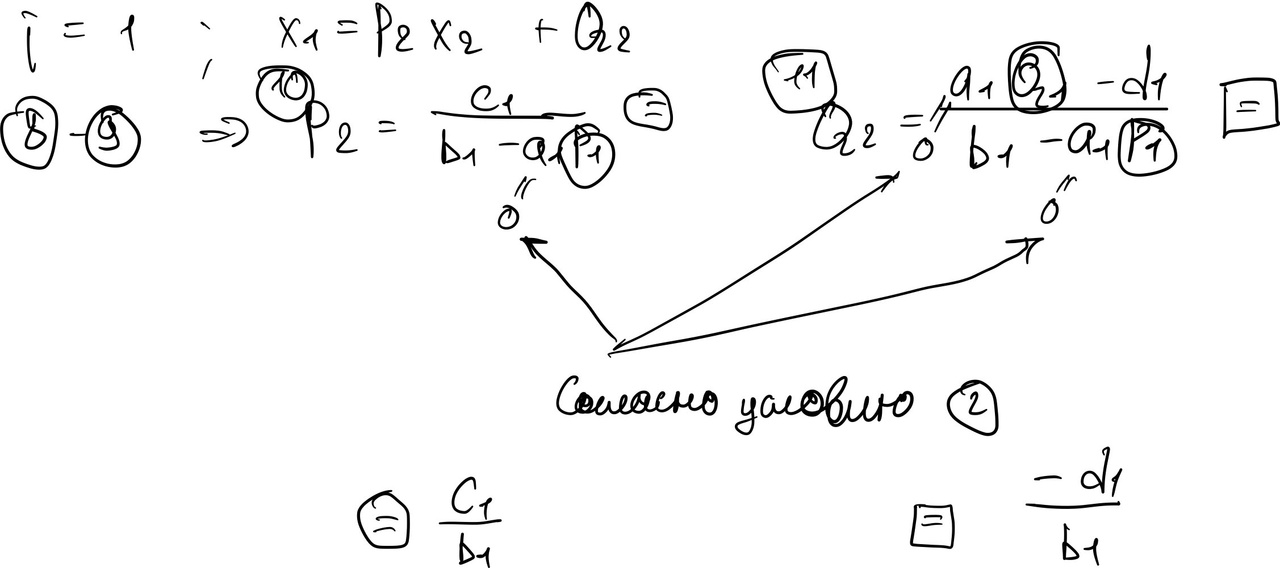 i = 1 ; x₁ = P₂ x₂ + Q₂
⑧ - ⑨ ⇒ ⑩ P₂ = c₁ / (b₁ - a₁P₁) ⊜ ⑪ Q₂ = (a₁Q₁ - d₁) / (b₁ - a₁P₁) =
0 0 0
Согласно условию ②
⊜ c₁ / b₁ = - d₁ / b₁